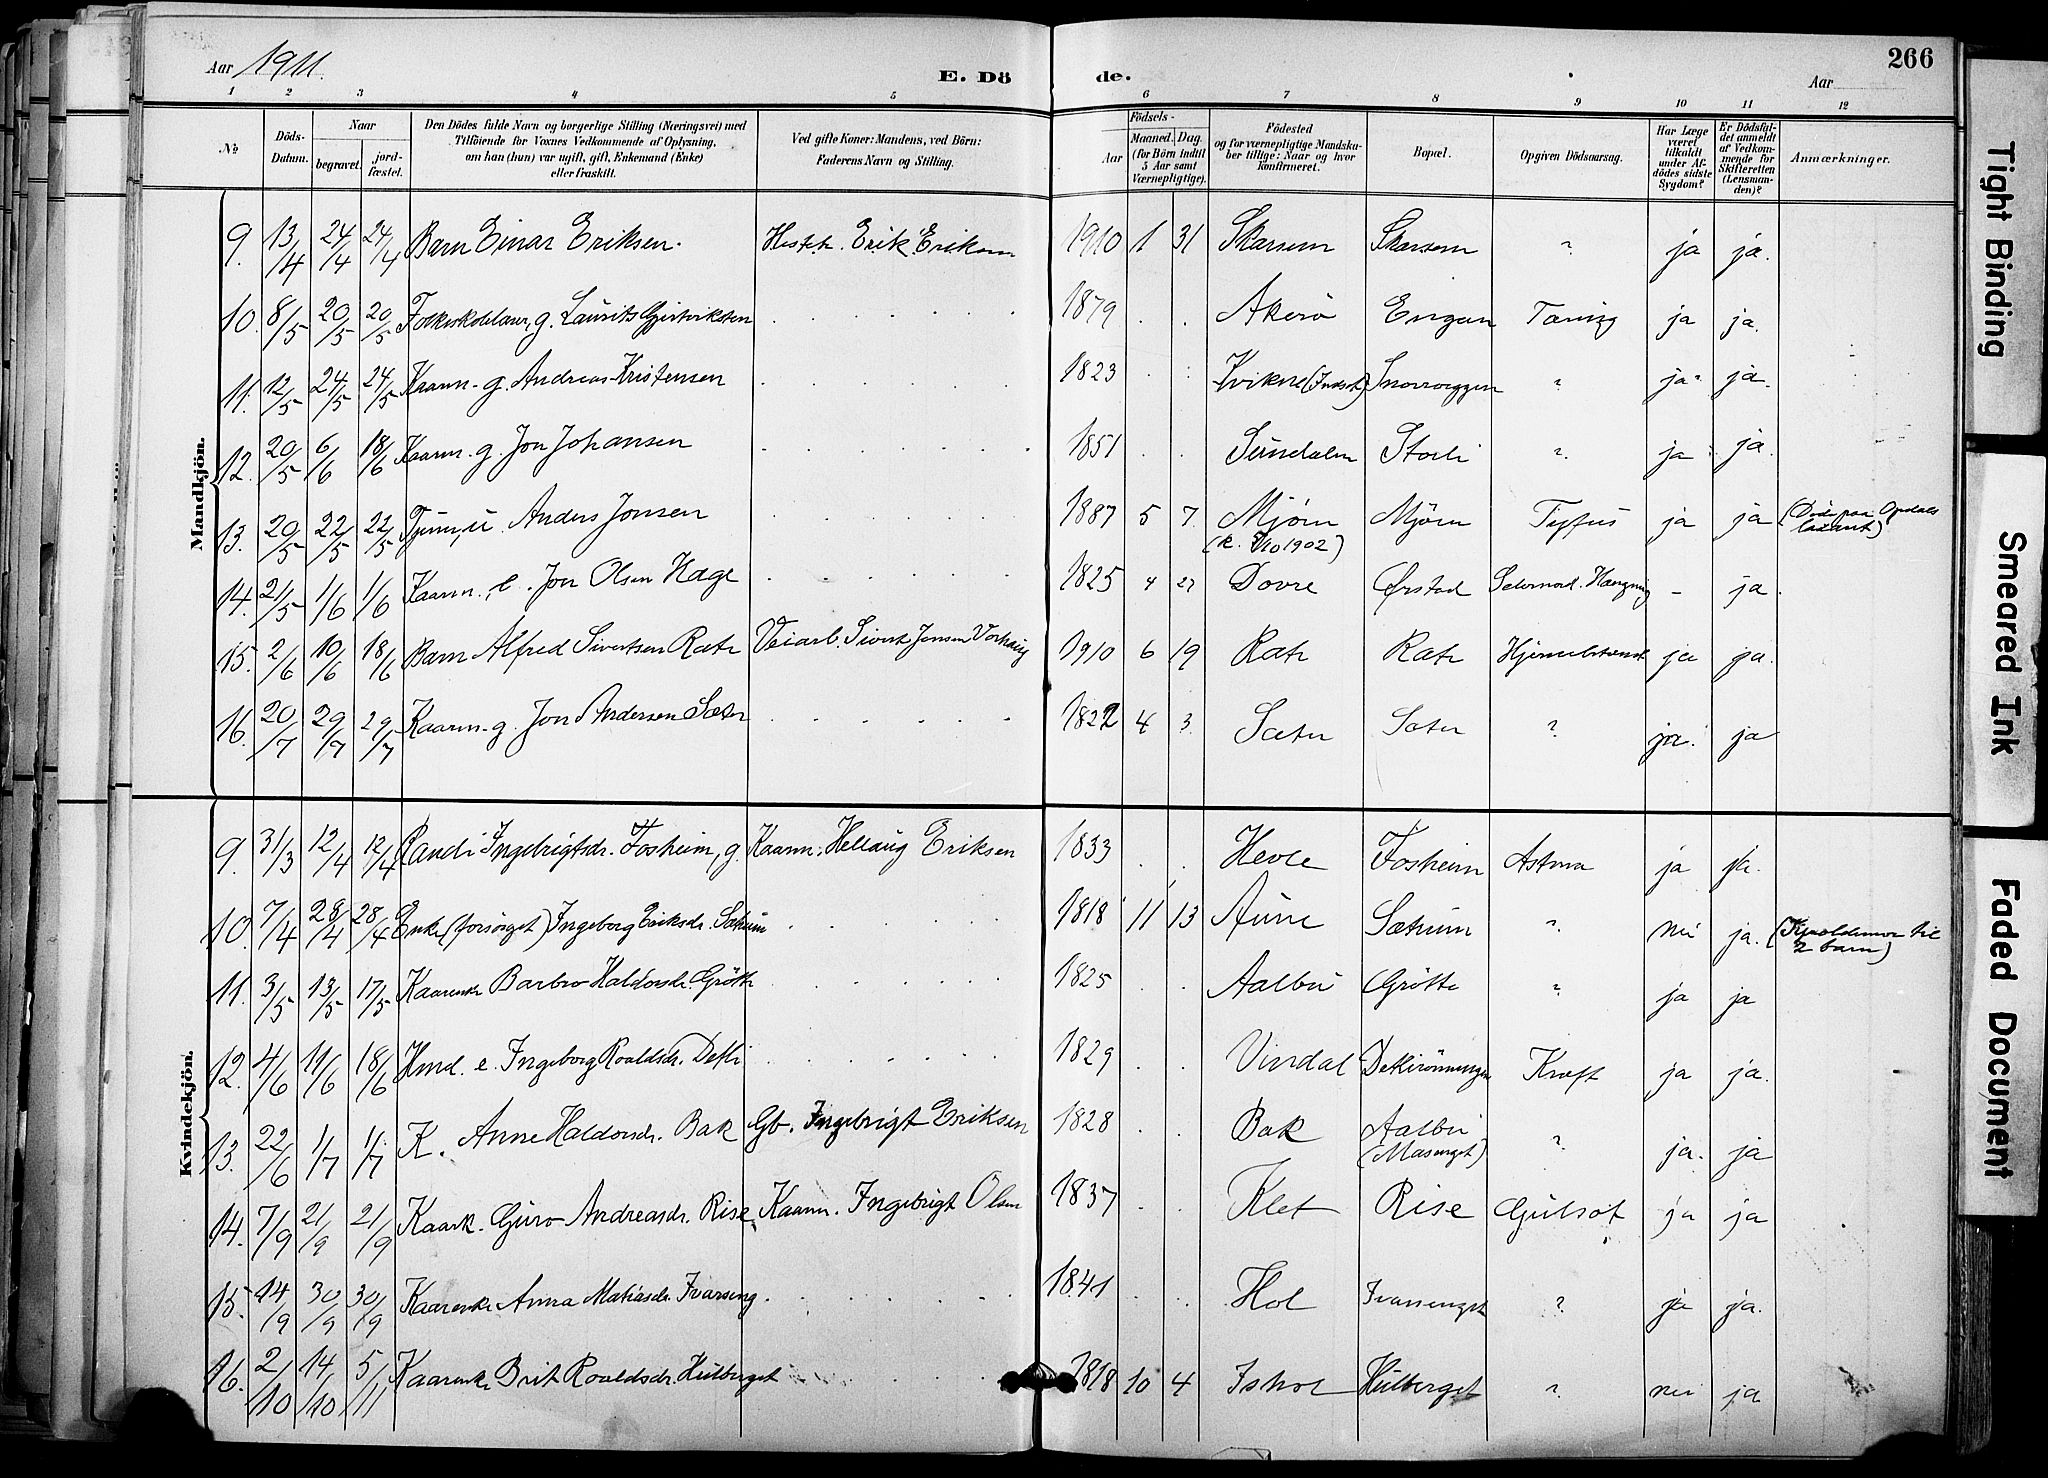 Aar 1911. E. Dö de. Aar 266
1 2 3 4 5 6 7 8 9 10 11 12
№ Döds-Datum. Naar begravet. jord-fæstet. Den Dödes fulde Navn og borgerlige Stilling (Næringsvei) med Tilföiende for Voxnes Vedkommende af Oplysning, om han (hun) var ugift, gift, Enkemand (Enke) eller fraskilt. Ved gifte Koner: Mandens, ved Börn: Faderens Navn og Stilling. Födsels- Aar Maaned. Dag. (for Börn indtil 5 Aar samt Værnepligtige). Födested og for værnepligtige Mandskaber tillige: Naar og hvor konfirmeret. Bopæl. Opgiven Dödsaarsag. Har Læge været tilkaldt under Afdödes sidste Sygdom? Er Dödsfaldet anmeldt af Vedkommende for Skifteretten (Lensmanden)? Anmærkninger.
Mandkjön.
9. 13/4 24/4 24/4 Barn Einar Eriksen. Erik Eriksen 1910 1 31 Skarsem Skarsem ? ja ja.
10. 8/5 20/5 20/5 g. Laurits 1879 . . Akerö Engan Tæring ja ja.
11. 12/5 24/5 24/5 Kaarm. g. Andreas Kristensen 1823 . . Kvikne (Indset) Snoroeggen ? ja ja.
12. 20/5 6/6 18/6 Kaarm. g. Jon Johansen 1851 . . Sundalen Storli ? ja ja.
13. 20/5 22/5 22/5 Tjener, u. Anders Jonsen 1887 5 7. Mjøen Mjøen Tyfus ja ja (Död paa Opdals lasaret)
(k. 1902)
14. 21/5 1/6 1/6 Kaarm. e. Jon Olsen Hage 1825 4 27 Dovre Ørstad Selvmord. Hængning - ja.
15. 2/6 10/6 18/6 Barn Alfred Sivertsen Ratr Veiarb. Sivert Jensen Vorhaug 1910 6 19 Ratr Ratr ja ja.
16. 20/7 29/7 29/7 Kaarm. g. Jon Andersen Sæter 1822 4 3. Sæter Sæter ? ja. ja
Kvindekjön.
9. 31/3 12/4 12/4 Randi Ingebrigtsdr. Fosheim, g. Kaarm. Hellaug Eriksen 1833 . . Hevle Fosheim Astma ja ja.
10. 7/4 28/4 28/4 Enke (forsörget) Ingeborg Eriksdr. Sætrum 1818 11 13 Aune Sætrum ? nei ja. til 2 barn)
11. 3/5 13/5 17/5 Kaarenke Barbro Haldorsdr. Grötte 1825 . . Aalbu Grötte ? ja ja
12. 4/6 11/6 18/6 Hmd. e. Ingeborg Roaldsdr. Detli 1829 . . Vindal Kræft ja ja.
13. 22/6 1/7 1/7 K. Anne Haldorsdr. Bak Gb. Ingebrigt Eriksen 1828 . . Bak Aalbu ? ja. ja
14. 7/9 21/9 21/9 Kaark. Guro Andreasdr. Rise Kaarm. Ingebrigt Olsen 1837 . . Klet Rise Gulsot ja ja
15. 14/9 30/9 30/9 Kaarenke Anna Matiasdr. Ivarseng 1841 . . Hol Ivarsenget ? ja ja.
16. 2/10 14/10 5/11 Kaarenke Brit Roaldsdr. Hulberget 1818 10 4 Ishol Hulberget ? nei ja
Tight Binding
Smeared Ink
Faded Document